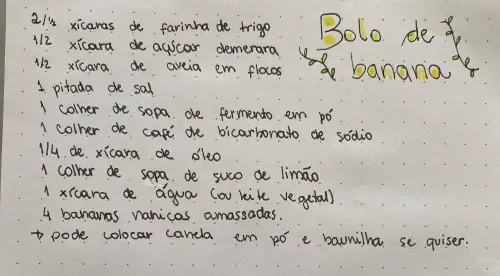 Bolo de banana
2/½ xícaras de farinha de trigo
1/2 xícara de açúcar demerara
1/2 xícara de aveia em flocos
1 pitada de sal
1 colher de sopa de fermento em pó
1 colher de café de bicarbonato de sódio
1/4 de xícara de óleo
1 colher de sopa de suco de limão
1 xícara de água (ou leite vegetal)
4 bananas nanicas amassadas.
→ pode colocar canela em pó e baunilha se quiser.